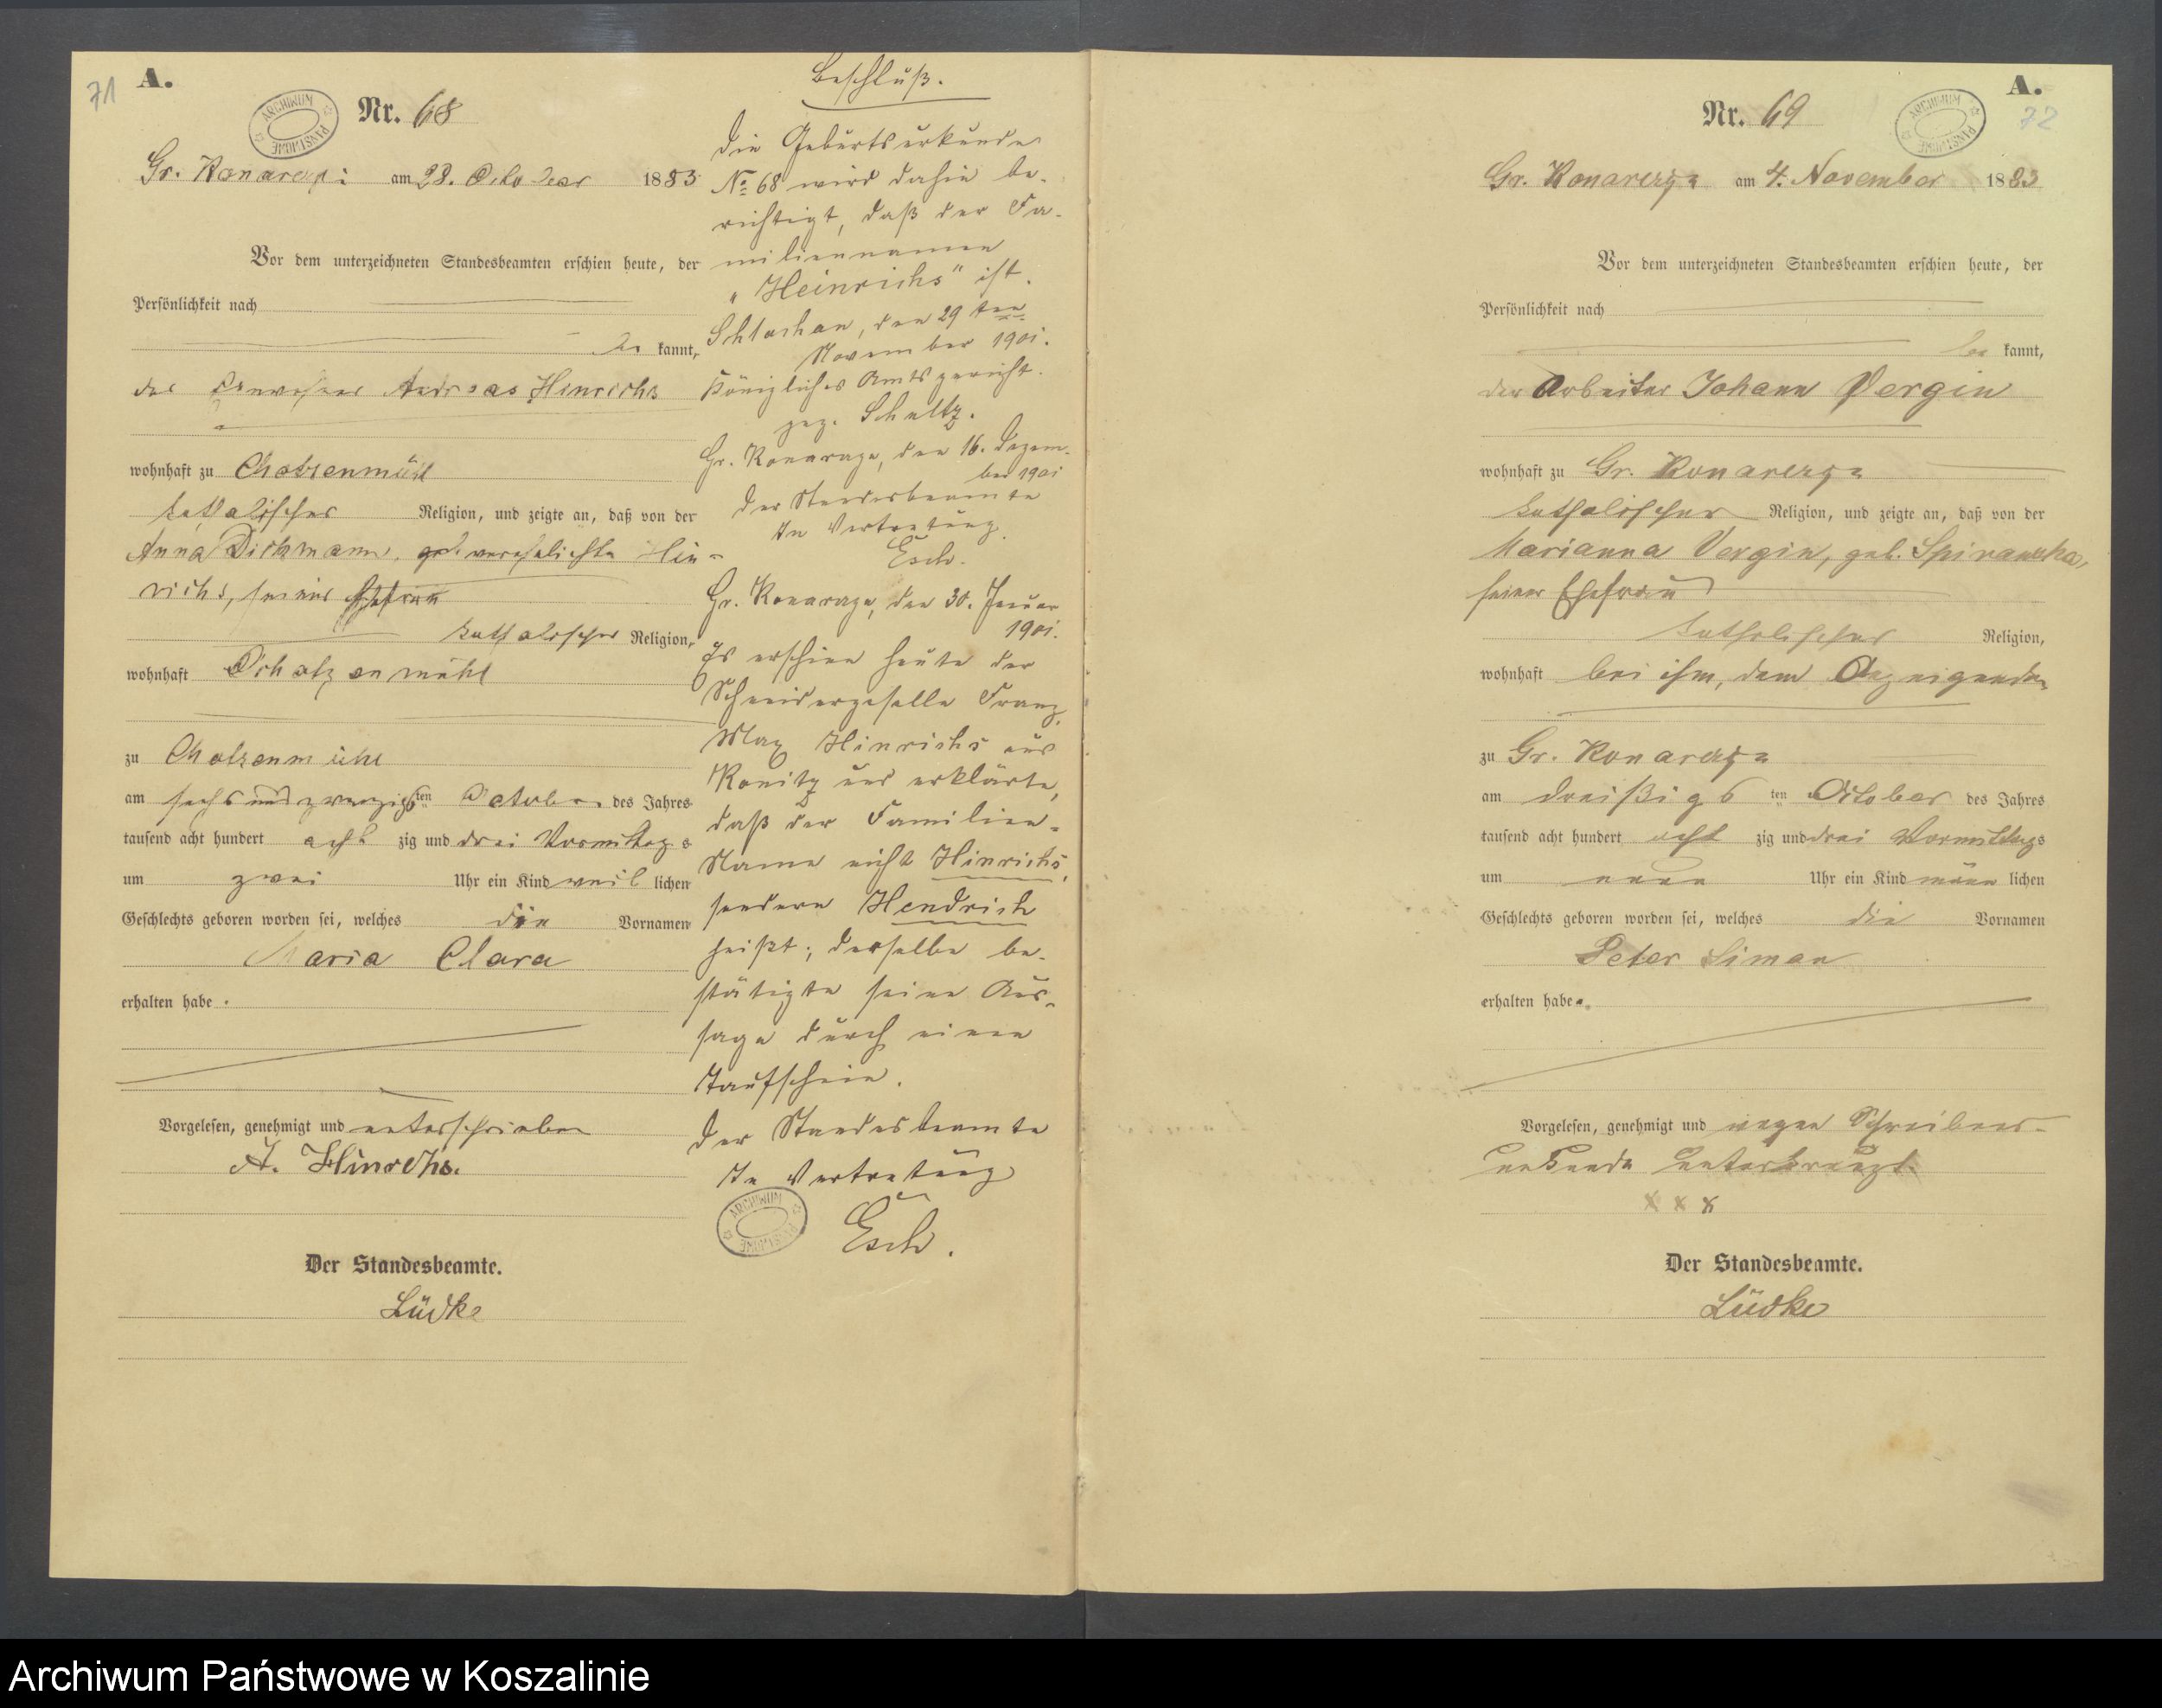 71
A.
ARCHIWUM PAŃSTWOWE
Nr. 68
Gr. Konarczyn am 28. October 1883
Vor dem unterzeichneten Standesbeamten erschien heute, der
Persönlichkeit nach
be kannt,
der Andreas Hinrichs
wohnhaft zu Chotzenmühl
katholischer Religion, und zeigte an, daß von der
Anna Dickmann, verehelichte Hin=
richs, seiner Ehefrau
katholischer Religion,
wohnhaft Chotzenmühl
zu Chotzenmühl
am sechsundzwanzigsten October des Jahres
tausend acht hundert acht zig und drei Vormittags
um zwei Uhr ein Kind weib lichen
Geschlechts geboren worden sei, welches die Vornamen
Maria Clara
erhalten habe.
Vorgelesen, genehmigt und unterschrieben
A. Hinrichs.
Der Standesbeamte.
Lüdke
Beschluß.
Die Geburtsurkunde
No 68 wird dahin be-
richtigt, daß der Fa-
miliennamen
"Heinrichs" ist.
Schlochau, den 29ten
November 1901.
Königliches Amtsgericht.
gez. Schultz.
Gr. Konarczyn, den 16. Dezem-
ber 1901
Der Standesbeamte
In Vertretung
Esch.
Gr. Konarczyn, den 30. Januar
1901.
Es erschien heute der
Schneidergeselle Franz
Max Hinrichs aus
Konitz und erklärte,
daß der Familien-
Name nicht Hinrichs,
sondern Hendrich
heißt; derselbe be-
stätigte seine Aus-
sage durch einen
Taufschein.
Der Standesbeamte
In Vertretung
Esch.
ARCHIWUM PAŃSTWOWE
A.
72
ARCHIWUM PAŃSTWOWE
Nr. 69
Gr. Konarczyn am 4. November 1883
Vor dem unterzeichneten Standesbeamten erschien heute, der
Persönlichkeit nach
be kannt,
der Arbeiter Johann Vergin
wohnhaft zu Gr. Konarczyn
katholischer Religion, und zeigte an, daß von der
Marianna Vergin, geb.
seiner Ehefrau
katholischer Religion,
wohnhaft bei ihm, dem Anzeigenden
zu Gr. Konarczyn
am dreißigsten October des Jahres
tausend acht hundert acht zig und drei Vormittags
um neun Uhr ein Kind männ lichen
Geschlechts geboren worden sei, welches die Vornamen
Peter Simon
erhalten habe.
Vorgelesen, genehmigt und wegen Schreibens-
unkunde unterkreuzt.
x x x
Der Standesbeamte.
Lüdke
Archiwum Państwowe w Koszalinie